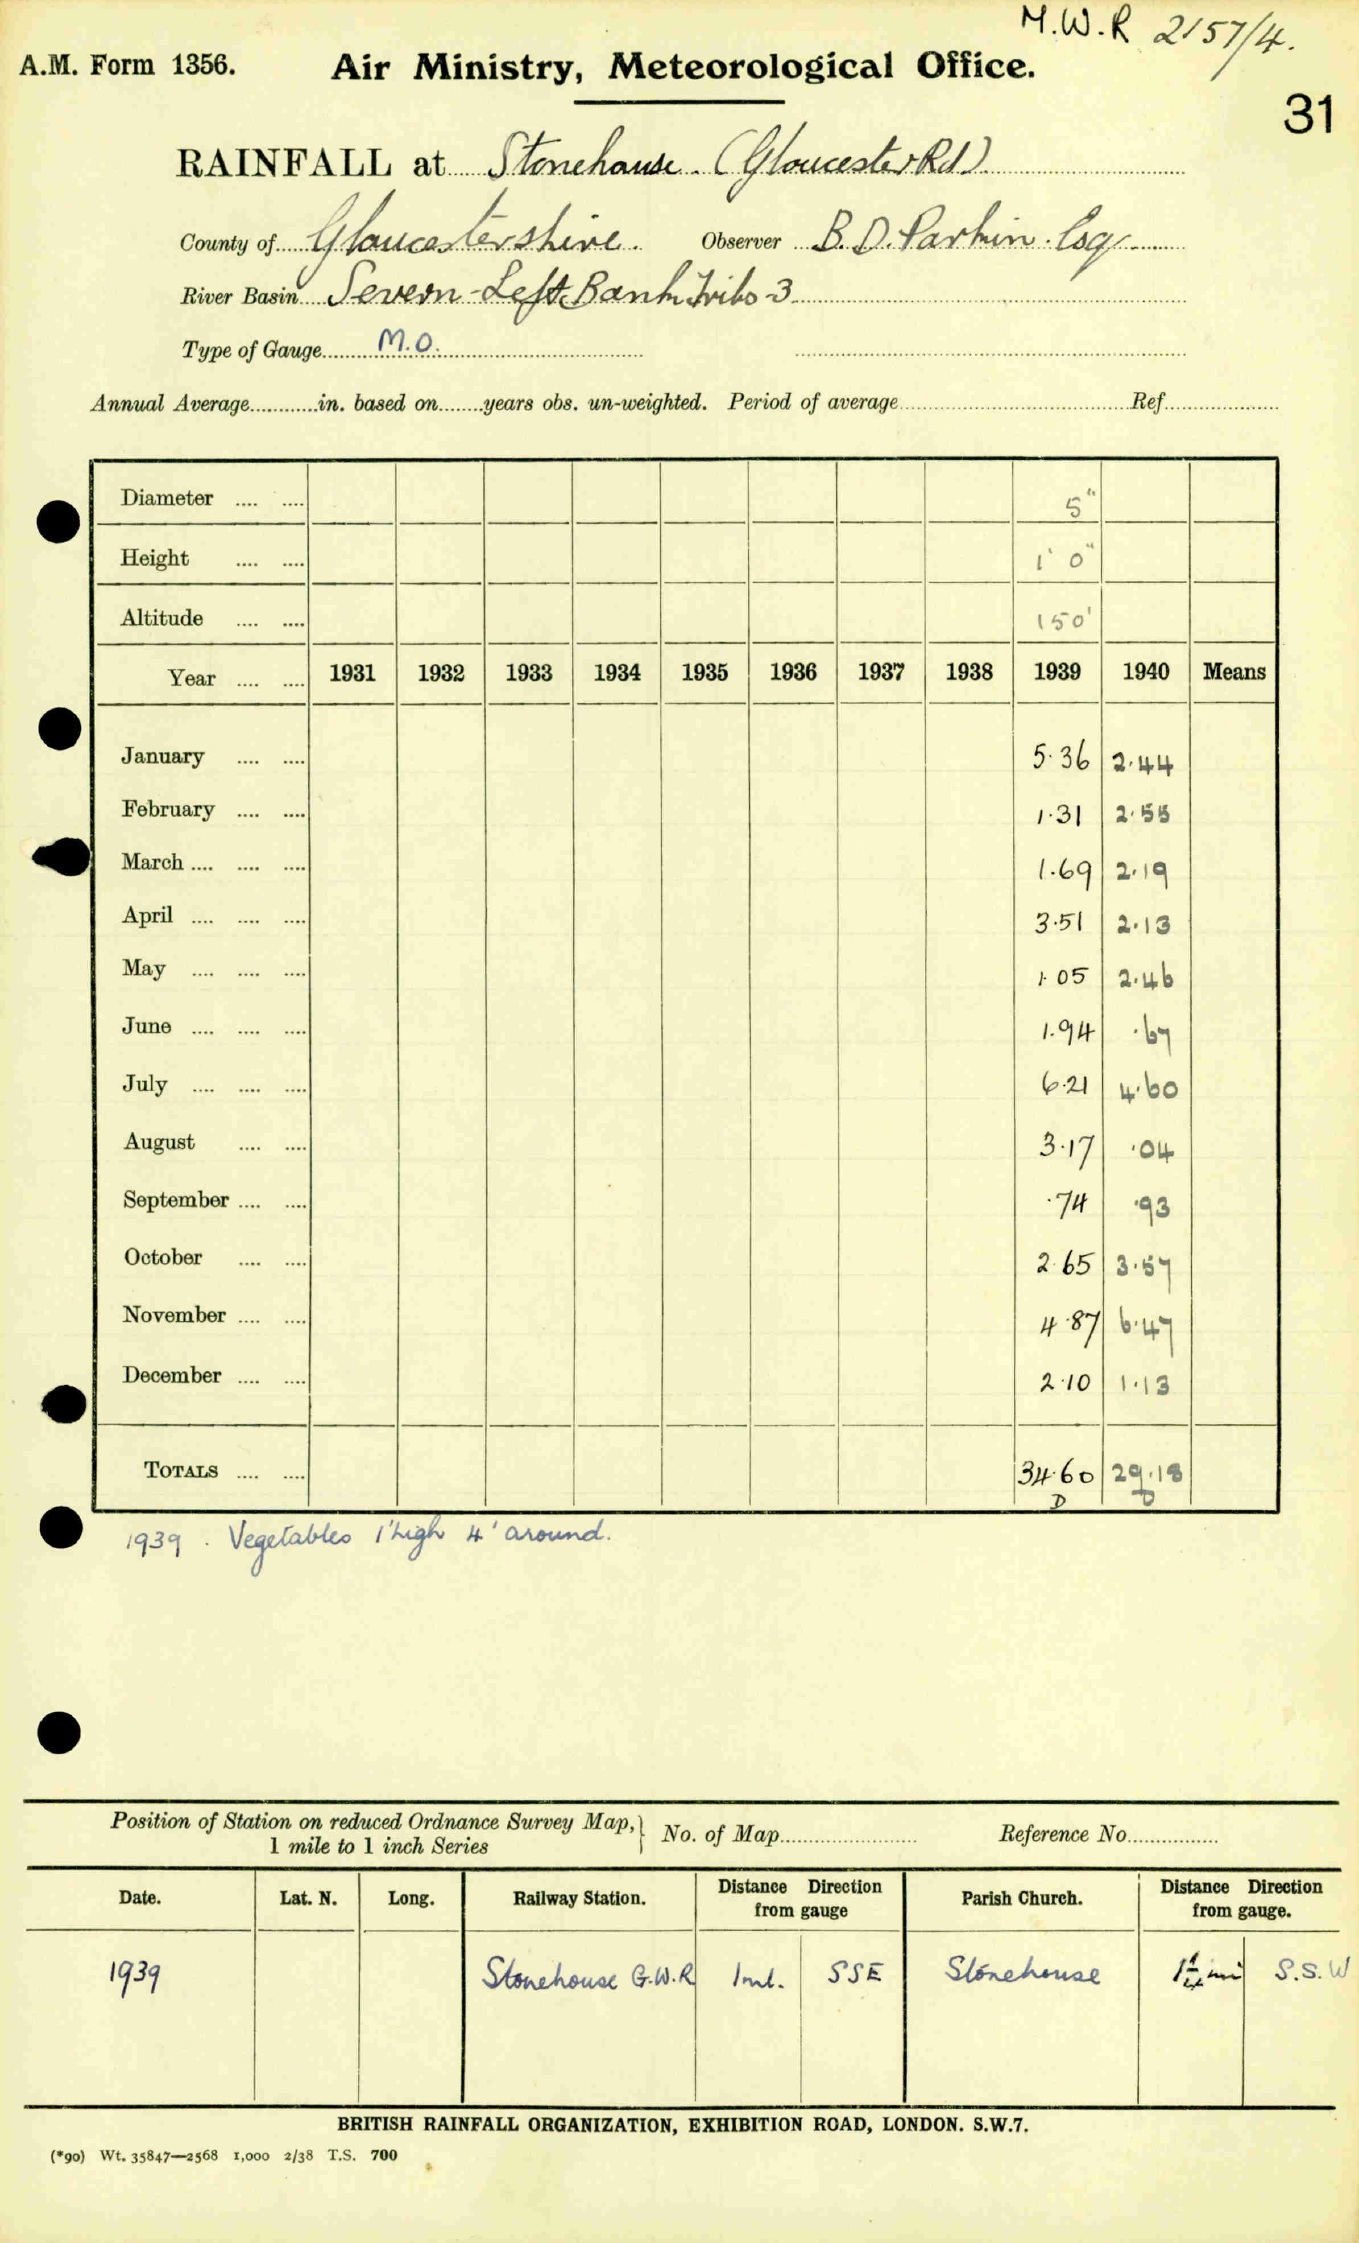 M.W.R 2157/4.
A.M. Form 1356. Air Ministry, Meteorological Office.
31
RAINFALL at Stonehouse. (Gloucester Rd)
County of Gloucestershire. Observer B. D. Parkin. Esq
River Basin Severn-Left Bank Tribs-3
Type of Gauge M.O.
Annual Average in. based on years obs. un-weighted. Period of average Ref.
Diameter .... .... 5"
Height .... .... 1' 0"
Altitude .... .... 150'
Year .... .... 1931 1932 1933 1934 1935 1936 1937 1938 1939 1940 Means
January .... .... 5.36 2.44
February .... .... 1.31 2.55
March .... .... .... 1.69 2.19
April .... .... .... 3.51 2.13
May .... .... .... 1.05 2.46
June .... .... .... 1.94 .67
July .... .... .... 6.21 4.60
August .... .... 3.17 .04
September .... .... .74 .93
October .... .... 2.65 3.57
November .... .... 4.87 6.47
December .... .... 2.10 1.13
TOTALS .... .... 34.60 29.18
D D
1939. Vegetables 1' high 4' around.
Position of Station on reduced Ordnance Survey Map,
1 mile to 1 inch Series
No. of Map Reference No.
Date. Lat. N. Long. Railway Station. Distance Direction from gauge Parish Church. Distance Direction from gauge.
1939 Stonehouse G.W.R 1ml. SSE Stonehouse 1¼ mi S.S.W
BRITISH RAINFALL ORGANIZATION, EXHIBITION ROAD, LONDON. S.W.7.
(*90) Wt. 35847—2568 1,000 2/38 T.S. 700